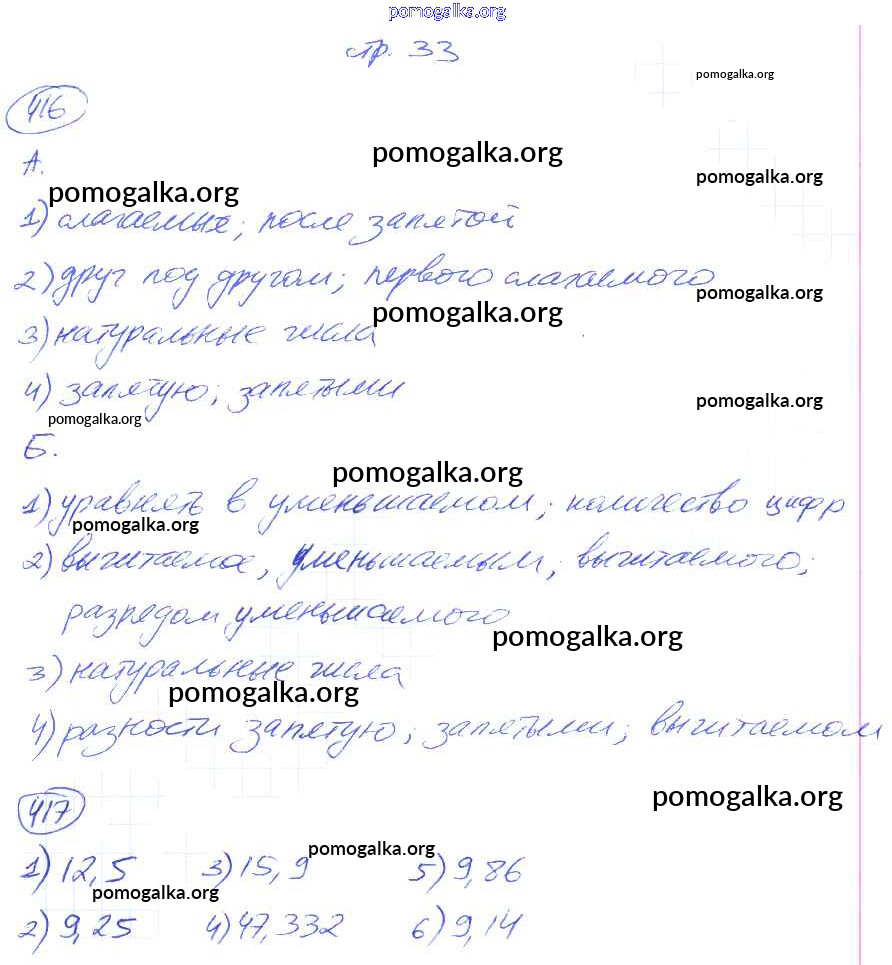 pomogalka.org
стр. 33
pomogalka.org
416
pomogalka.org
А.
pomogalka.org
pomogalka.org
1) слагаемых; после запятой
2) друг под другом; первого слагаемого
pomogalka.org
pomogalka.org
3) натуральные числа
4) запятую; запятыми
pomogalka.org
pomogalka.org
Б.
pomogalka.org
1) уравнять в уменьшаемом; количество цифр
pomogalka.org
2) вычитаемое, уменьшаемым, вычитаемого;
разрядом уменьшаемого
pomogalka.org
3) натуральные числа
pomogalka.org
4) разности запятую; запятыми; вычитаемом
417
pomogalka.org
pomogalka.org
1) 12,5 3) 15,9 5) 9,86
pomogalka.org
2) 9,25 4) 47,332 6) 9,14